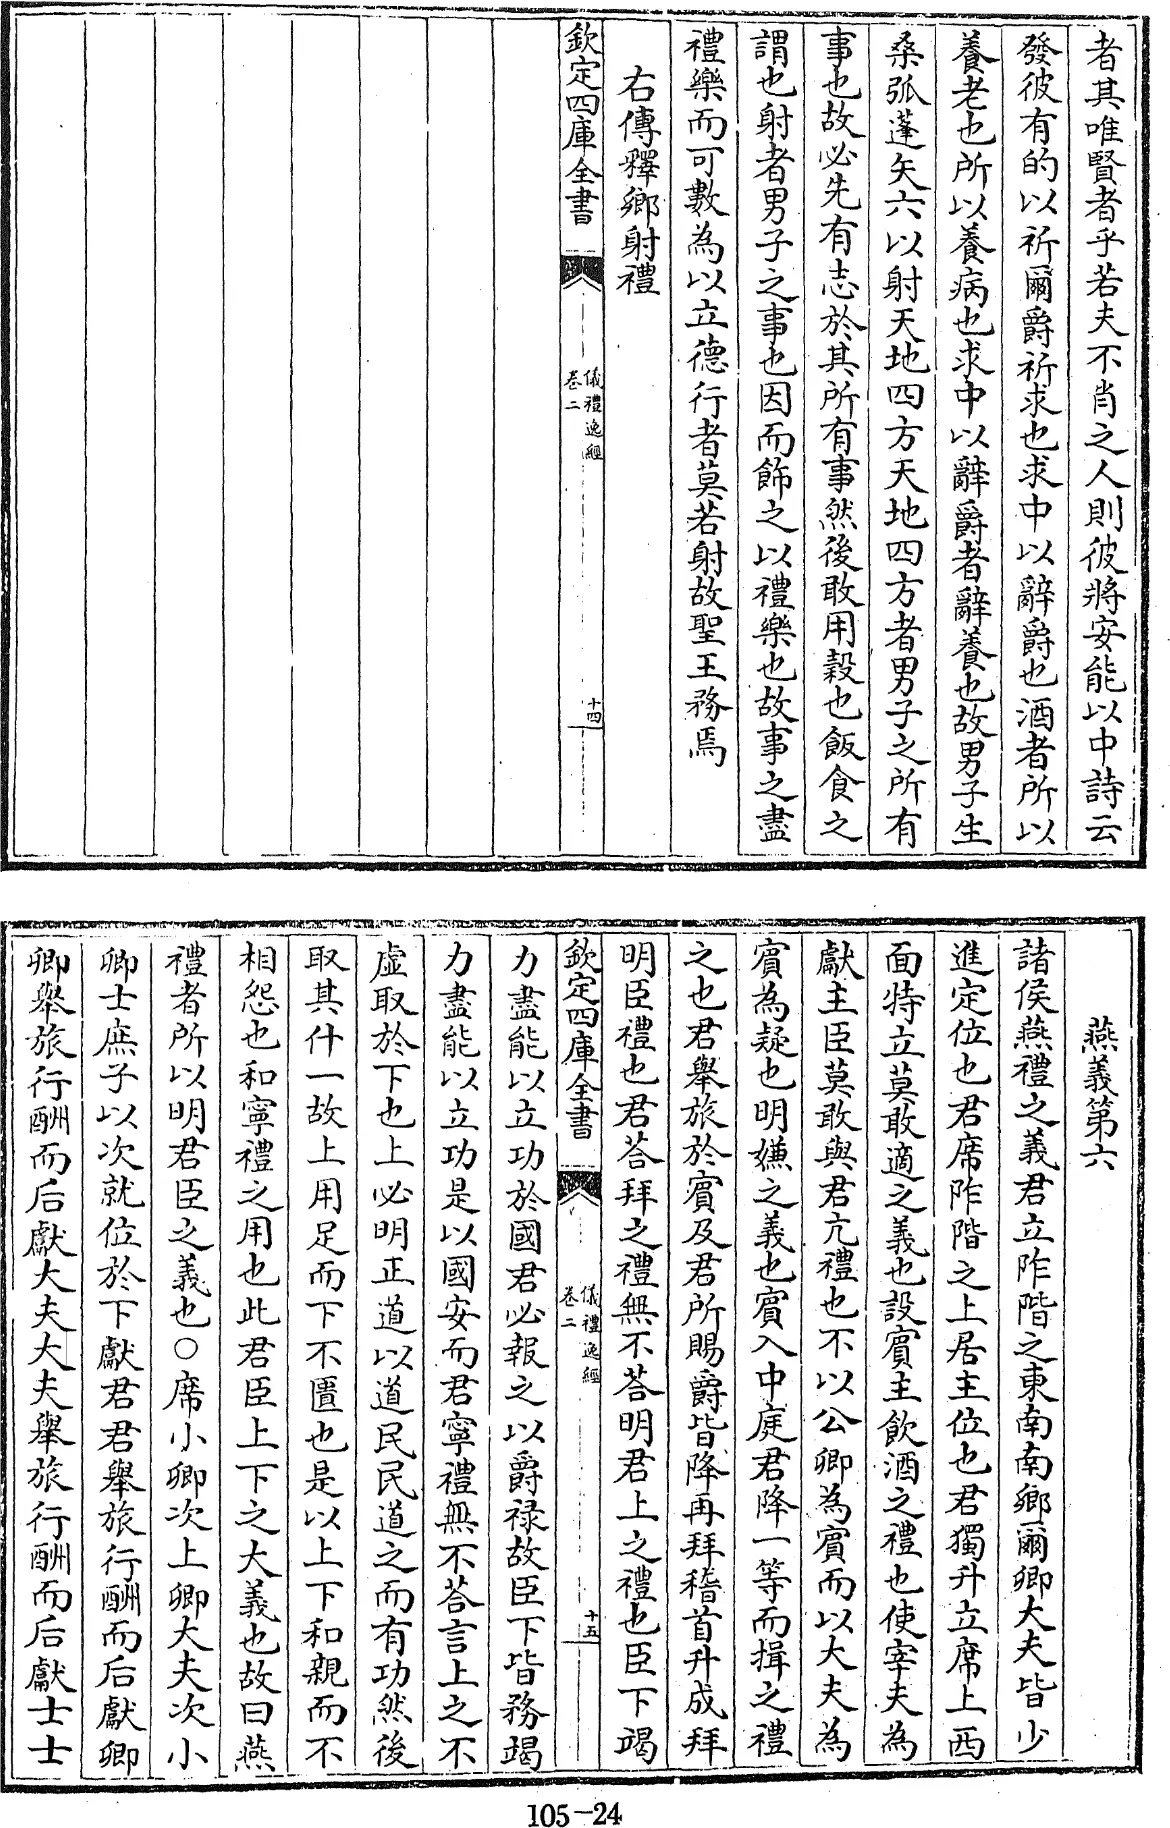 者其唯賢者乎若夫不肖之人則彼將安能以中詩云
發彼有的以祈爾爵祈求也求中以辭爵也酒者所以
養老也所以養病也求中以辭爵者辭養也故男子生
桑弧蓬矢六以射天地四方天地四方者男子之所有
事也故必先有志於其所有事然後敢用穀也飯食之
謂也射者男子之事也因而飾之以禮樂也故事之盡
禮樂而可數為以立德行者莫若射故聖王務焉
右傳釋鄉射禮
欽定四庫全書
儀禮逸經
卷二
十四
燕義第六
諸侯燕禮之義君立阼階之東南南鄉爾卿大夫皆少
進定位也君席阼階之上居主位也君獨升立席上西
面特立莫敢適之義也設賓主飲酒之禮也使宰夫為
獻主臣莫敢與君亢禮也不以公卿為賓而以大夫為
賓為疑也明嫌之義也賓入中庭君降一等而揖之禮
之也君舉旅於賓及君所賜爵皆降再拜稽首升成拜
明臣禮也君荅拜之禮無不荅明君上之禮也臣下竭
欽定四庫全書
儀禮逸經
卷二
十五
力盡能以立功於國君必報之以爵祿故臣下皆務竭
力盡能以立功是以國安而君寧禮無不荅言上之不
虛取於下也上必明正道以道民民道之而有功然後
取其什一故上用足而下不匱也是以上下和親而不
相怨也和寧禮之用也此君臣上下之大義也故曰燕
禮者所以明君臣之義也○席小卿次上卿大夫次小
卿士庶子以次就位於下獻君君舉旅行酬而后獻卿
卿舉旅行酬而后獻大夫大夫舉旅行酬而后獻士士
105-24